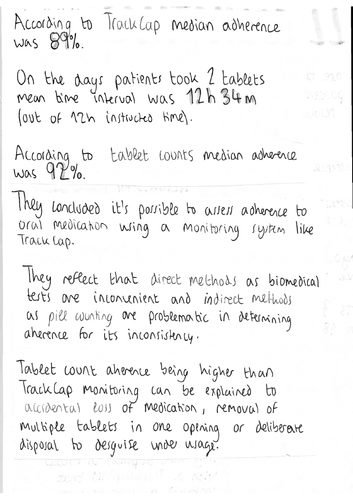 According to TrackCap median adherence
was 89%.
On the days patients took 2 tablets
mean time interval was 12h 34m
(out of 12h instructed time).
According to tablet counts median adherence
was 92%.
They concluded it's possible to assess adherence to
oral medication using a monitoring system like
Track Cap.
They reflect that direct methods as biomedical
tests are inconvenient and indirect methods
as pill counting are problematic in determining
aherence for its inconsistency.
Tablet count aherence being higher than
TrackCap monitoring can be explained to
accidental loss of medication, removal of
multiple tablets in one opening or deliberate
disposal to desguise under usage.